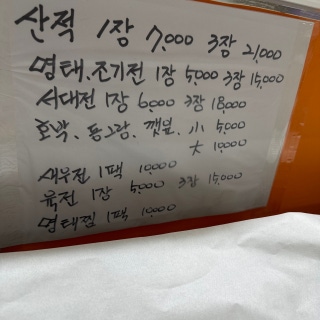 산적 1장 7,000 3장 21,000
명태.조기전 1장 5000 3장 15,000
서대전 1장 6000 3장 18,000
호박、동그랑、깻잎、小 5000
大 10,000
새우전 1팩 10,000
육전 1장 5,000 3장 15,000
명태찜 1팩 10,000